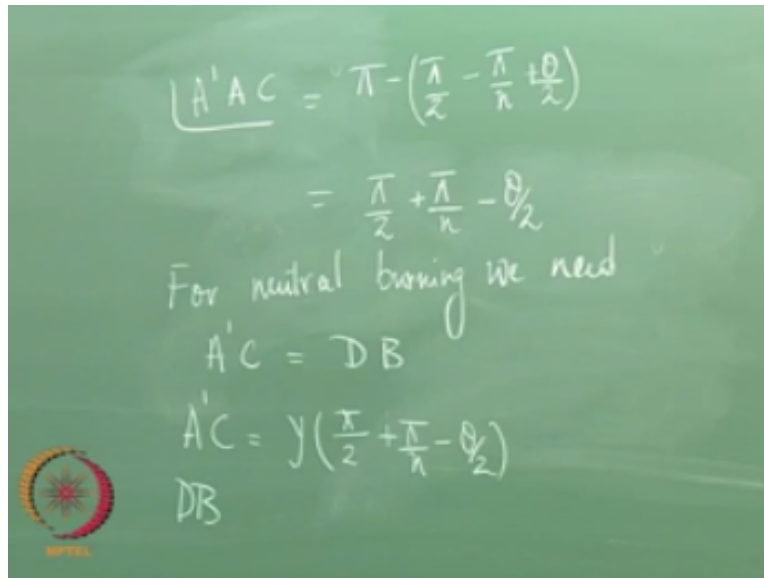 ∠A'AC = π - (π/2 - π/n + θ/2)
= π/2 + π/n - θ/2
For neutral burning we need
A'C = DB
A'C = y(π/2 + π/n - θ/2)
DB
NPTEL